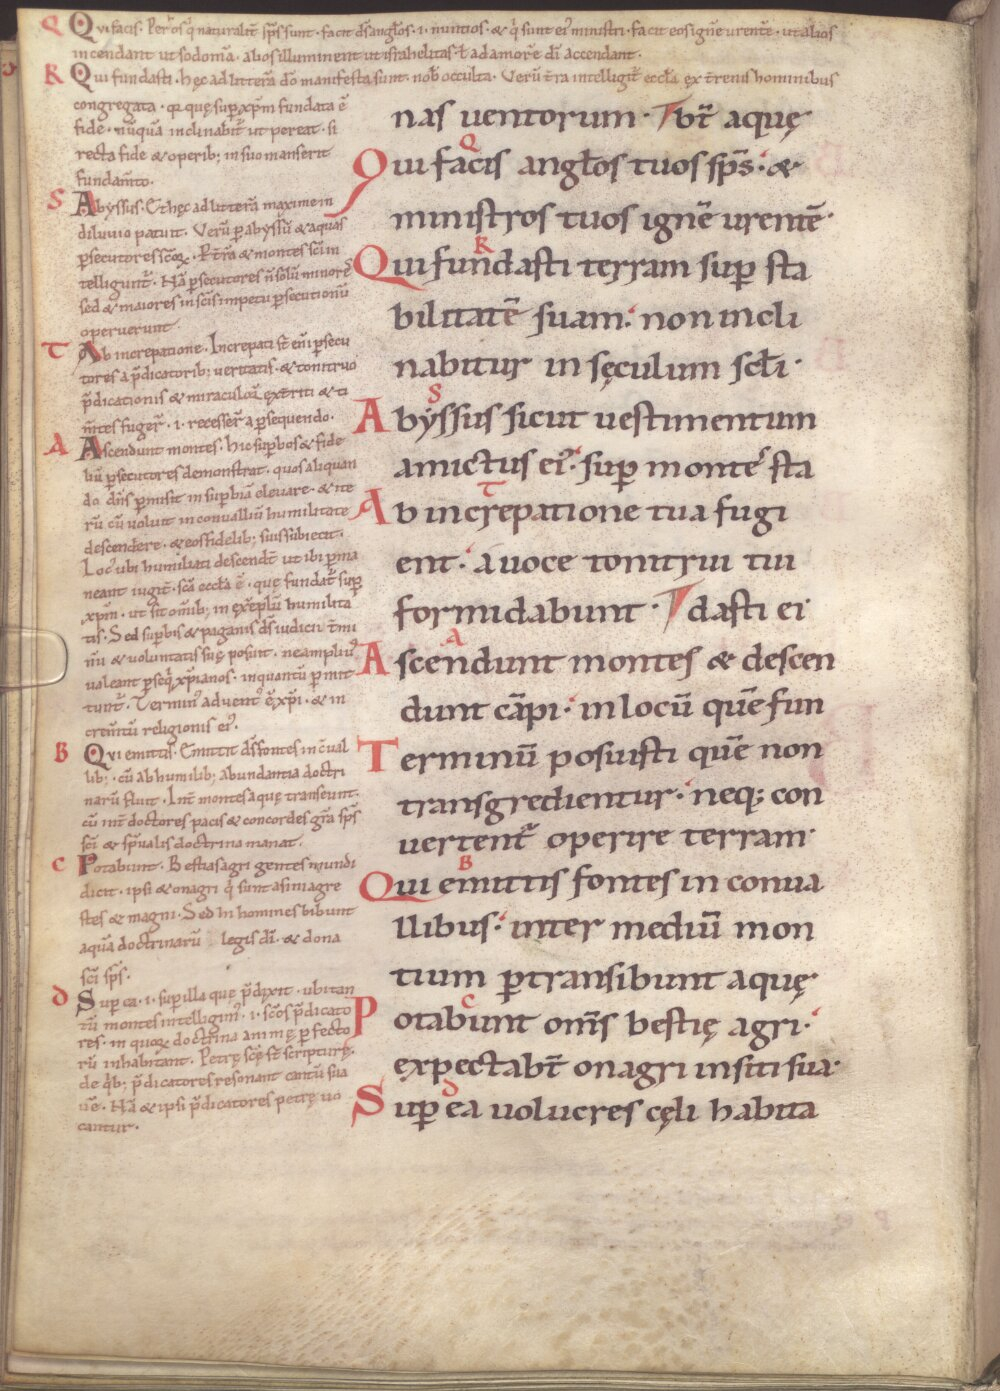 Q Qui facis. Per os q̇ naturalit̄ sp̄s sunt. facit d̄s angłos .i. nuntios. & q̇ sunt ei ministri. facit eos ignē urentē. ut alios
incendant ut sodomā. alios illuminent ut israhelitas. ł ad amorē dī accendant.
R Qui fundasti. hęc ad litterā dō manifesta sunt. nob̄ occulta. Verū t̄ra intelligit̄ eccła ex t̄renis hominibus
congregata. quę sup xp̄m fundata ē
fide. nūquā inclinabit̄ ut pereat. si
recta fide & operib; in suo manserit
fundam̄to.
S Abyssus. Et hęc ad litterā maxime in
diluuio patuit. Verū p abyssū & aquas
psecutores scōꝝ. P t̄rā & montes sc̄i in
telligunt̄. Nā psecutores n̄ solū minores
sed & maiores in sc̄is impetu psecutionū
operuerunt.
T Ab increpatione. Increpati st̄ eni psecu
tores a p̄dicatorib; ueritatis. & tonitruo
p̄dicationis & miraculoꝝ ext̄riti & ti
m̄tes fuger̄. .i. recesser̄ a psequendo.
A Ascendunt montes. hic supbos & fide
liū psecutores demonstrat. quos aliquan
do dn̄s pmisit in supbiā eleuare. & ite
rū cū uoluit in conualliū humilitate
descendere. & eos fidelib; suis subiecit.
Loc' ubi humiliati descendt̄ ut ibi pma
neant iugit̄. sc̄a eccła ē. quę fundat̄ sup
xp̄m. ut sit om̄ib; in exēplū humilita
tis. Sed supbis & paganis d̄s iudicii t̄mi
nū & uoluntatis suę posuit. ne ampli'
ualeant pseq̇ xp̄ianos. inquantū pmit
tunt̄. Termin' aduent' ē xp̄i. & in
crem̄tū religionis ei'.
B Qui emittis. Emittit d̄s fontes in cual
lib;. cū ab humilib; abundantia doctri
narū fluit. Int̄ montes aquę transeunt.
cū int̄ doctores pacis & concordes gr̄a sp̄s
sc̄i & sp̄ualis doctrina manat.
C Potabunt. Bestias agri gentes mundi
dicit. ipsi & onagri q̇ sunt asini agre
stes & magni. Sed hi homines bibunt
aquā doctrinarū legis dī. & dona
sc̄i sp̄s.
D Sup ea .i. sup illa quę p̄dixit. ubi tan
tū montes intelligim' .i. sc̄os p̄dicato
res. in quoꝝ doctrina animę pfecto
rū inhabitant. Petrę scę st̄ scripturę.
de q̇b; p̄dicatores resonant cantū sua
uē. Nā & ipsi p̄dicatores petrę uo
cantur.
nas uentorum. Vbt̄ aquę
Q
Qui facis angłos tuos sp̄s. &
ministros tuos ignē urentē.
R
Qui fundasti terram sup sta
bilitatē suam. non incli
nabitur in sęculum scłi.
S
Abyssus sicut uestimentum
amictus ei'. sup monte' sta
T
Ab increpatione tua fugi
ent. a uoce tonitrui tui
formidabunt. Vdasti ei
A
Ascendunt montes & descen
dunt cāpi. in locū quē fun
Terminū posuisti quē non
transgredientur. neq; con
uertent̄ operire terram.
B
Qui emittis fontes in conua
llibus. inter mediū mon
tium ptransibunt aquę
C
Potabunt om̄s bestię agri.
expectabt̄ onagri in siti sua.
D
Sup ea uolucres cęli habita